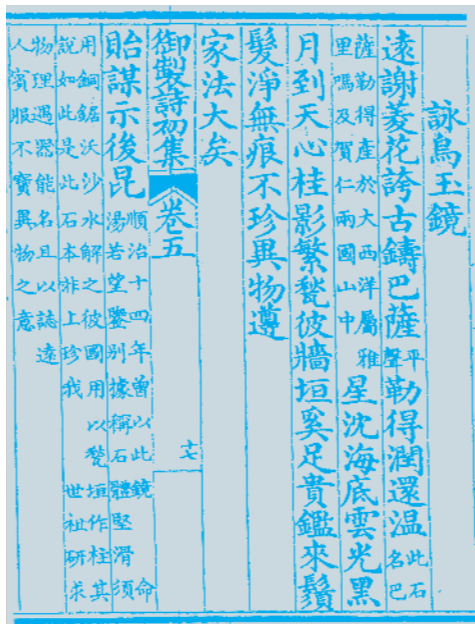 詠烏玉鏡
遠謝菱花誇古鑄巴薩平聲勒得潤還溫此石名巴
薩勒得產於大西洋屬雅里嗎及賀仁兩國山中星沈海底雲光黑
月到天心桂影繁甃彼牆垣奚足貴鑑來鬚
髮淨無痕不珍異物遵
家法大矣
御製詩初集 卷五 十七
貽謀示後昆順治十四年曾以此鏡命湯若望鑒別據稱石體堅滑須
用銅鋸沃沙水解之彼國用以甃垣作柱其說如此是此石本非上珍我世祖研求
物理遇器能名且以誌遠人賓服不寶異物之意